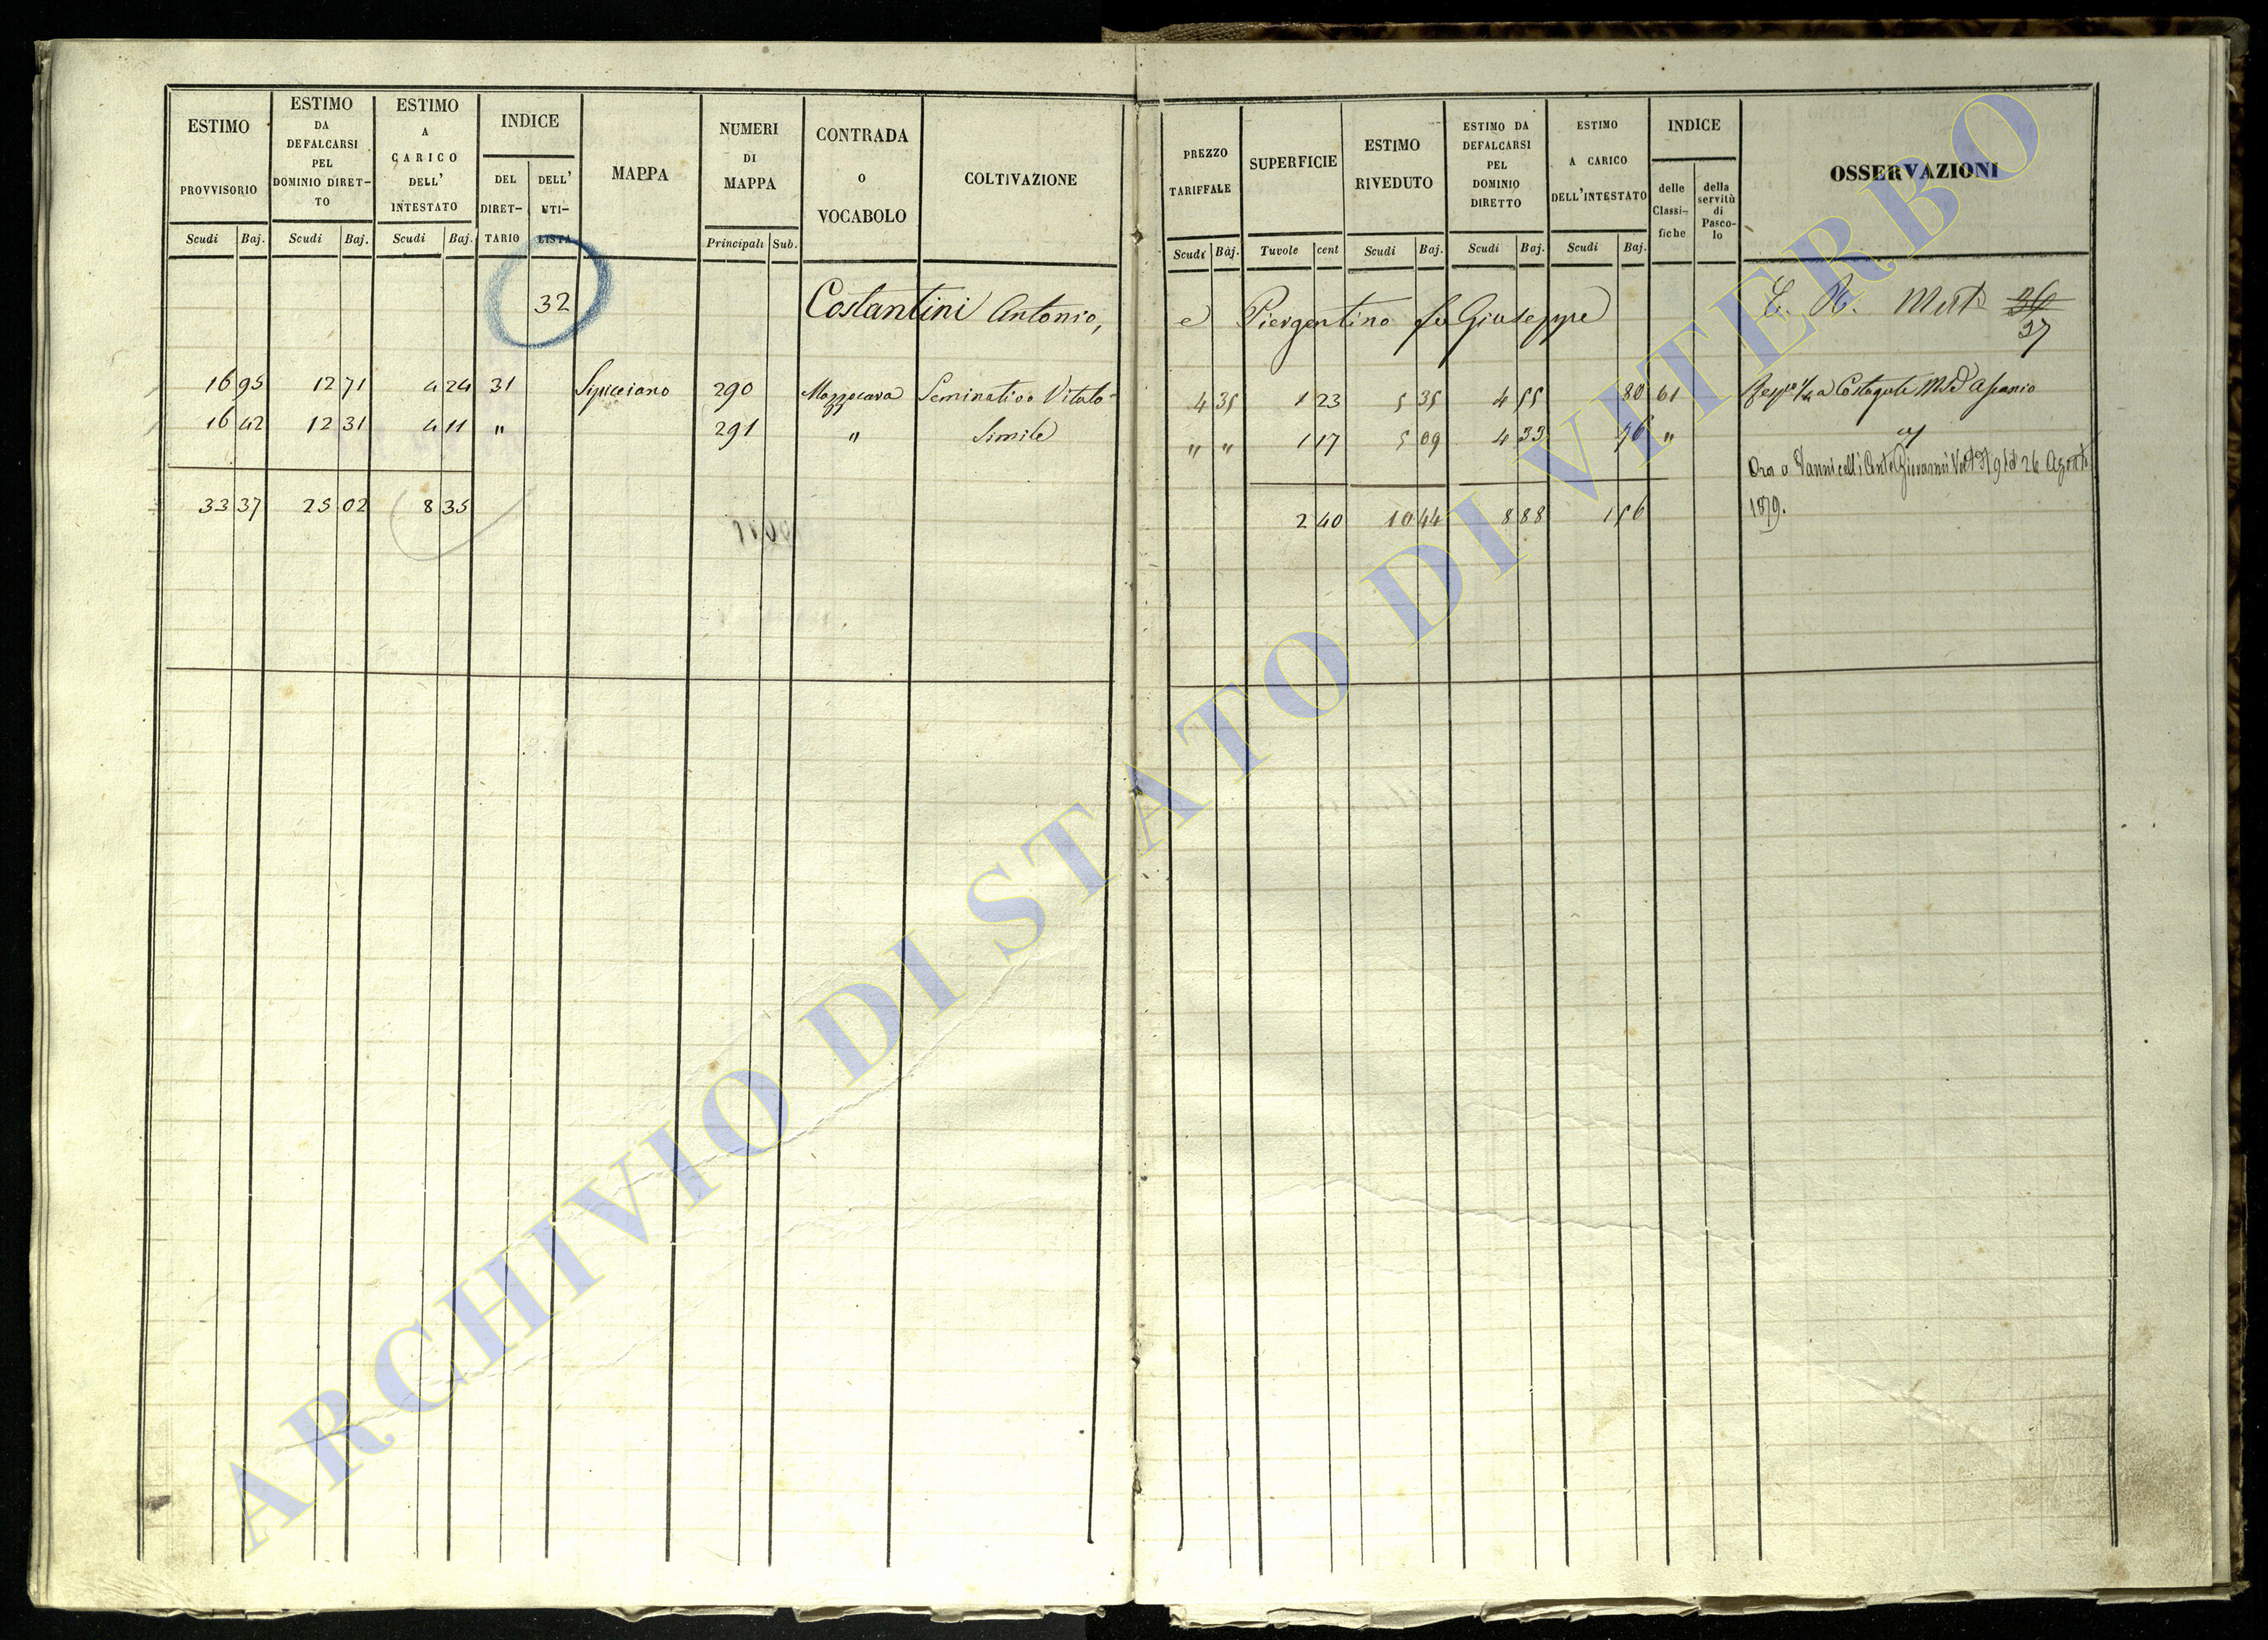 ESTIMO PROVVISORIO
Scudi Baj.
ESTIMO DA DEFALCARSI PEL DOMINIO DIRET-TO
Scudi Baj.
ESTIMO A CARICO DELL' INTESTATO
Scudi Baj.
INDICE
DEL DIRET-TARIO
DELL' UTI-LISTA
MAPPA
NUMERI DI MAPPA
Principali Sub.
CONTRADA O VOCABOLO
COLTIVAZIONE
PREZZO TARIFFALE
Scudi Baj.
SUPERFICIE
Tavole cent
ESTIMO RIVEDUTO
Scudi Baj.
ESTIMO DA DEFALCARSI PEL DOMINIO DIRETTO
Scudi Baj.
ESTIMO A CARICO DELL'INTESTATO
Scudi Baj.
INDICE
delle Classi-fiche
della servitù di Pasco-lo
OSSERVAZIONI
32 Costantini Antonio, e Piergentino fu Giuseppe 36
37
16 95 12 71 4 24 31 Sipicciano 290 Mazzocava Seminativo Vitato 4 35 1 23 5 35 4 55 80 61
16 42 12 31 4 11 " 291 " Simile " " 1 17 5 09 4 33 76 "
Ora a Vannicelli Conte Giovanni 26 Agosto
33 37 25 02 8 35 2 40 10 44 8 88 1 56 1879.
ARCHIVIO DI STATO DI VITERBO